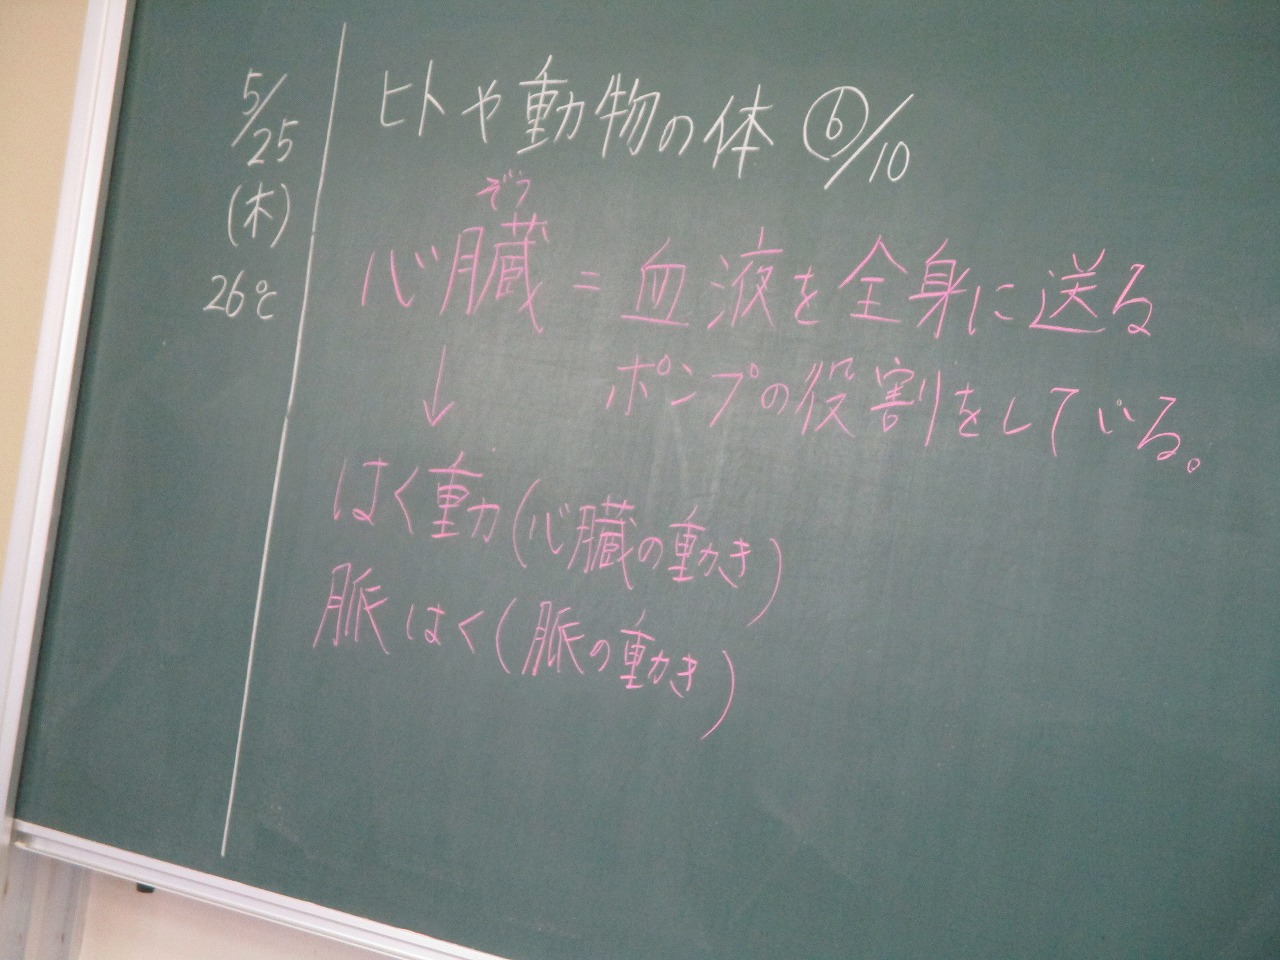 5/25
(木)
26℃
ヒトや動物の体 ⑥/10
ぞう
心臓=血液を全身に送る
ポンプの役割をしている。
↓
はく動(心臓の動き)
脈はく(脈の動き)